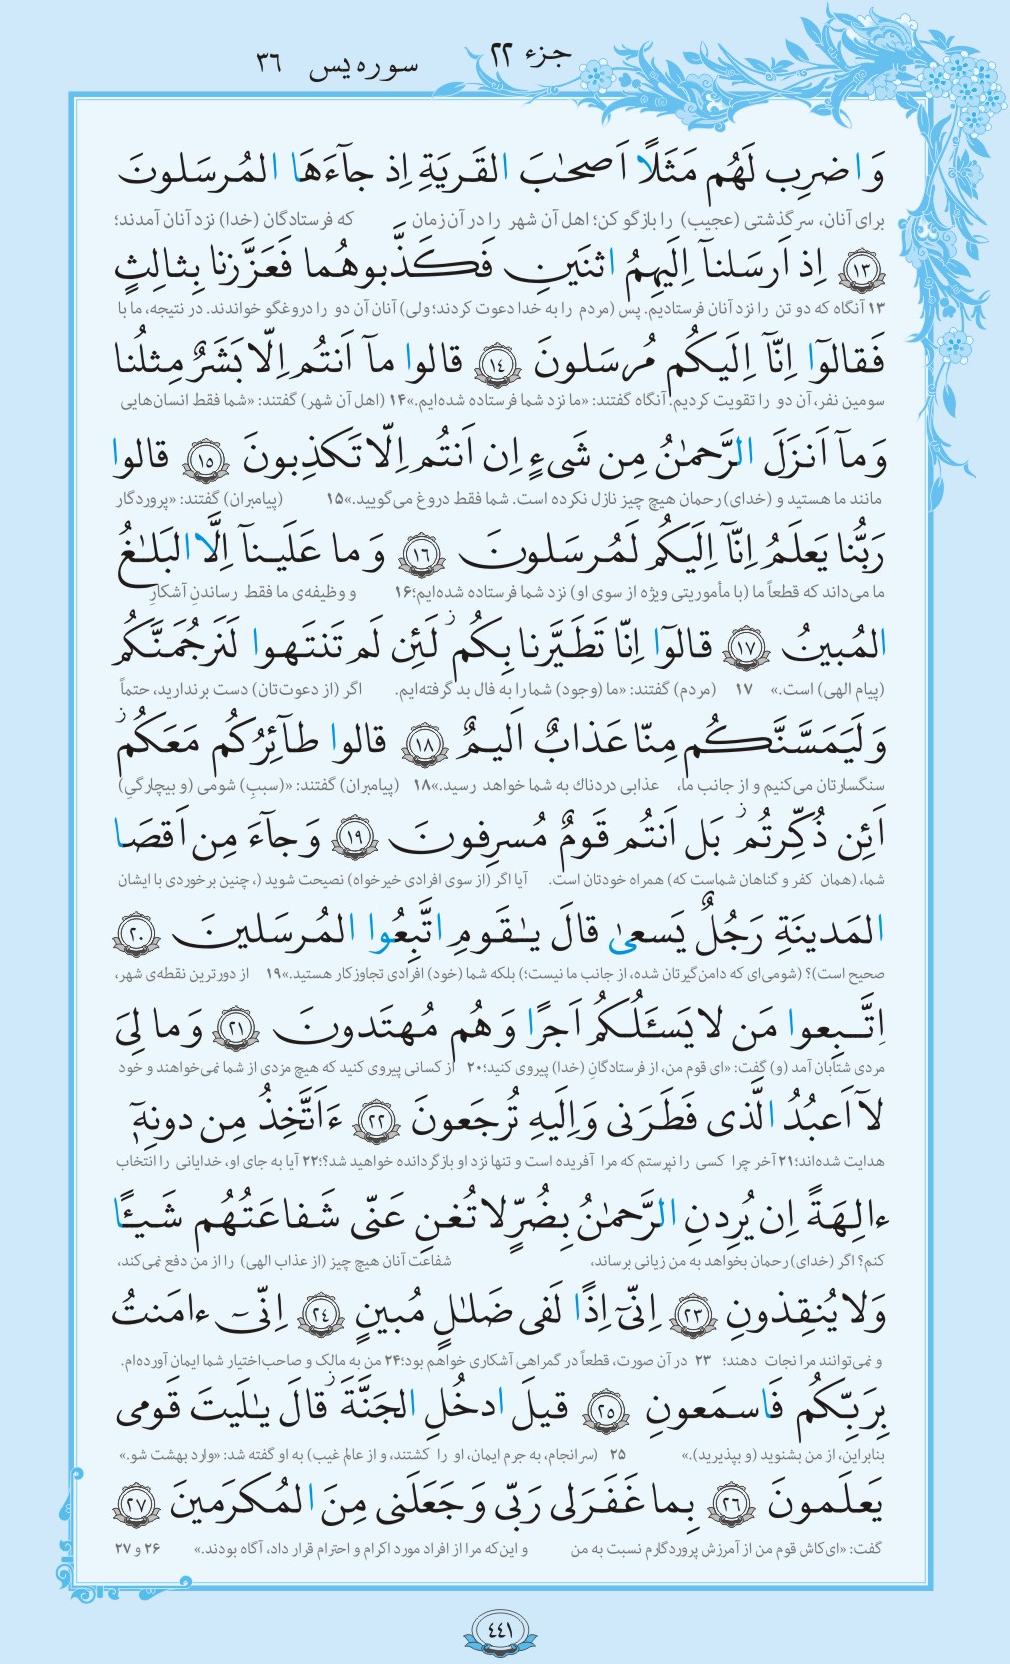 جزء ۲۲
سوره یس ۳۶
وَاضرِب لَهُم مَثَلًا اَصحٰبَ القَریَةِ اِذ جآءَهَا المُرسَلونَ
برای آنان، سرگذشتی (عجیب) را بازگو کن؛ اهل آن شهر را در آن زمان که فرستادگان (خدا) نزد آنان آمدند؛
﴿۱۳﴾ اِذ اَرسَلنآ اِلَیهِمُ اثنَینِ فَکَذَّبوهُما فَعَزَّزنا بِثالِثٍ
۱۳ آنگاه که دو تن را نزد آنان فرستادیم. پس (مردم را به خدا دعوت کردند؛ ولی) آنان آن دو را دروغگو خواندند. در نتیجه، ما با
فَقالوٓا اِنّآ اِلَیکُم مُرسَلونَ ﴿۱۴﴾ قالوا مآ اَنتُم اِلّا بَشَرٌ مِثلُنا
سومین نفر، آن دو را تقویت کردیم. آنگاه گفتند: «ما نزد شما فرستاده شده‌ایم.»۱۴ (اهل آن شهر) گفتند: «شما فقط انسان‌هایی
وَ مآ اَنزَلَ الرَّحمٰنُ مِن شَیءٍ اِن اَنتُم اِلّا تَکذِبونَ ﴿۱۵﴾ قالوا
مانند ما هستید و (خدای) رحمان هیچ چیز نازل نکرده است. شما فقط دروغ می‌گویید.»۱۵ (پیامبران) گفتند: «پروردگار
رَبُّنا یَعلَمُ اِنّآ اِلَیکُم لَمُرسَلونَ ﴿۱۶﴾ وَ ما عَلَینآ اِلَّا البَلٰغُ
ما می‌داند که قطعاً ما (با مأموریتی ویژه از سوی او) نزد شما فرستاده شده‌ایم؛۱۶ و وظیفه‌ی ما فقط رساندنِ آشکارِ
المُبینُ ﴿۱۷﴾ قالوٓا اِنّا تَطَیَّرنا بِکُم ز لَئِن لَم تَنتَهوا لَنَرجُمَنَّکُم
(پیام الهی) است.» ۱۷ (مردم) گفتند: «ما (وجود) شما را به فال بد گرفته‌ایم. اگر (از دعوت‌تان) دست برندارید، حتماً
وَ لَیَمَسَّنَّکُم مِنّا عَذابٌ اَلیمٌ ﴿۱۸﴾ قالوا طآئِرُکُم مَعَکُم ز
سنگسارتان می‌کنیم و از جانب ما، عذابی دردناك به شما خواهد رسید.»۱۸ (پیامبران) گفتند: «(سببِ) شومی (و بیچارگیِ)
اَئِن ذُکِّرتُم ز بَل اَنتُم قَومٌ مُسرِفونَ ﴿۱۹﴾ وَ جآءَ مِن اَقصَا
شما، (همان کفر و گناهان شماست که) همراه خودتان است. آیا اگر (از سوی افرادی خیرخواه) نصیحت شوید (، چنین برخوردی با ایشان
المَدینَةِ رَجُلٌ یَسعیٰ قالَ یٰقَومِ اتَّبِعُوا المُرسَلینَ ﴿۲۰﴾
صحیح است)؟ (شومی‌ای که دامن‌گیرتان شده، از جانب ما نیست؛) بلکه شما (خود) افرادی تجاوزکار هستید.»۱۹ از دورترین نقطه‌ی شهر،
اِتَّبِعوا مَن لا یَسئَلُکُم اَجرًا وَ هُم مُهتَدونَ ﴿۲۱﴾ وَ ما لِیَ
مردی شتابان آمد (و) گفت: «ای قوم من، از فرستادگانِ (خدا) پیروی کنید؛۲۰ از کسانی پیروی کنید که هیچ مزدی از شما نمی‌خواهند و خود
لآ اَعبُدُ الَّذی فَطَرَنی وَ اِلَیهِ تُرجَعونَ ﴿۲۲﴾ ءَاَتَّخِذُ مِن دونِهٓ
هدایت شده‌اند؛۲۱ آخر چرا کسی را نپرستم که مرا آفریده است و تنها نزد او بازگردانده خواهید شد؟؛۲۲ آیا به جای او، خدایانی را انتخاب
ءالِهَةً اِن یُرِدنِ الرَّحمٰنُ بِضُرٍّ لا تُغنِ عَنّی شَفاعَتُهُم شَیئًا
کنم؟ اگر (خدای) رحمان بخواهد به من زیانی برساند، شفاعت آنان هیچ چیز (از عذاب الهی) را از من دفع نمی‌کند،
وَ لا یُنقِذونِ ﴿۲۳﴾ اِنّیٓ اِذًا لَفی ضَلٰلٍ مُبینٍ ﴿۲۴﴾ اِنّیٓ ءامَنتُ
و نمی‌توانند مرا نجات دهند؛ ۲۳ در آن صورت، قطعاً در گمراهی آشکاری خواهم بود؛۲۴ من به مالک و صاحب‌اختیار شما ایمان آورده‌ام.
بِرَبِّکُم فَاسمَعونِ ﴿۲۵﴾ قیلَ ادخُلِ الجَنَّةَ ز قالَ یٰلَیتَ قَومی
بنابراین، از من بشنوید (و بپذیرید).» ۲۵ (سرانجام، به جرم ایمان، او را کشتند، و از عالم غیب) به او گفته شد: «وارد بهشت شو.»
یَعلَمونَ ﴿۲۶﴾ بِما غَفَرَلی رَبّی وَ جَعَلَنی مِنَ المُکرَمینَ ﴿۲۷﴾
گفت: «ای‌کاش قوم من از آمرزش پروردگارم نسبت به من و این‌که مرا از افراد مورد اکرام و احترام قرار داد، آگاه بودند.» ۲۶ و ۲۷
۴۴۱